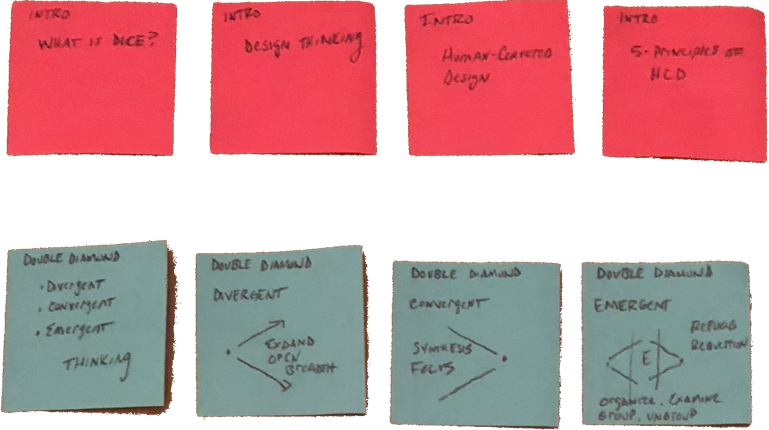 INTRO
WHAT IS DICE?
INTRO
DESIGN THINKING
INTRO
HUMAN-CENTERED
DESIGN
INTRO
5-PRINCIPLES OF
HCD
DOUBLE DIAMOND
• DIVERGENT
• CONVERGENT
• EMERGENT
THINKING
DOUBLE DIAMOND
DIVERGENT
EXPAND
OPEN
BREADTH
DOUBLE DIAMOND
CONVERGENT
SYNTHESIS
FOCUS
DOUBLE DIAMOND
EMERGENT
E
ORGANIZE. EXAMINE
GROUP. UNGROUP